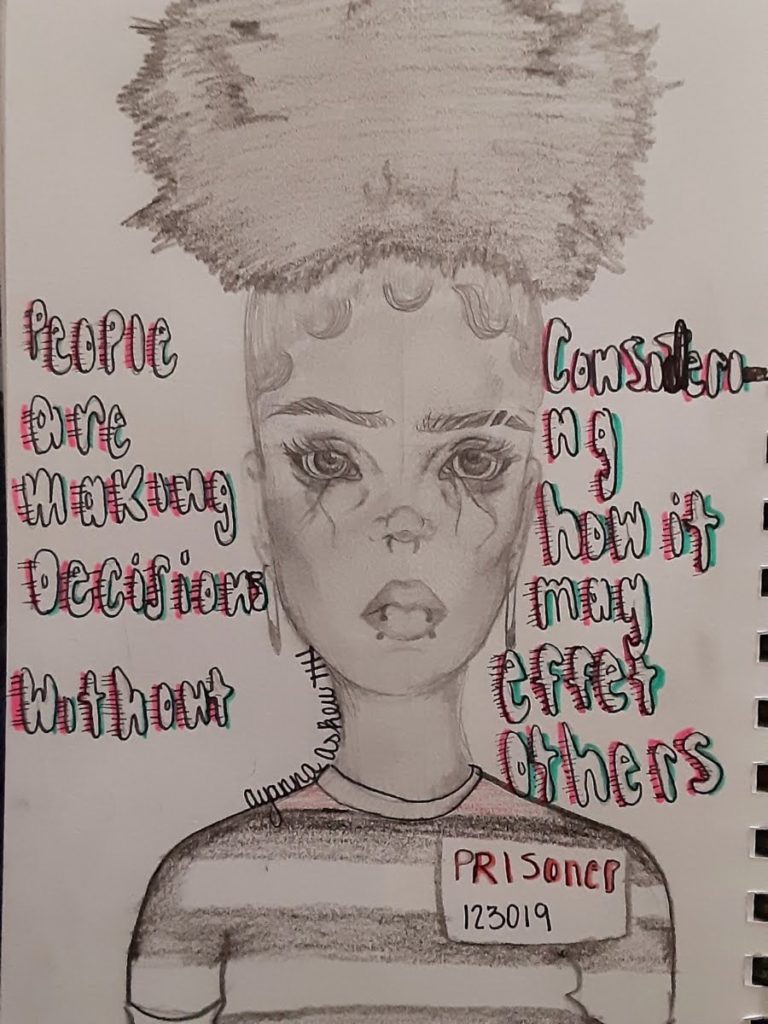 PEOPlE
are
making
Decisions
Without
Consideri-
ng
how it
may
effet
Others
ayanna askew
PRISoner
123019